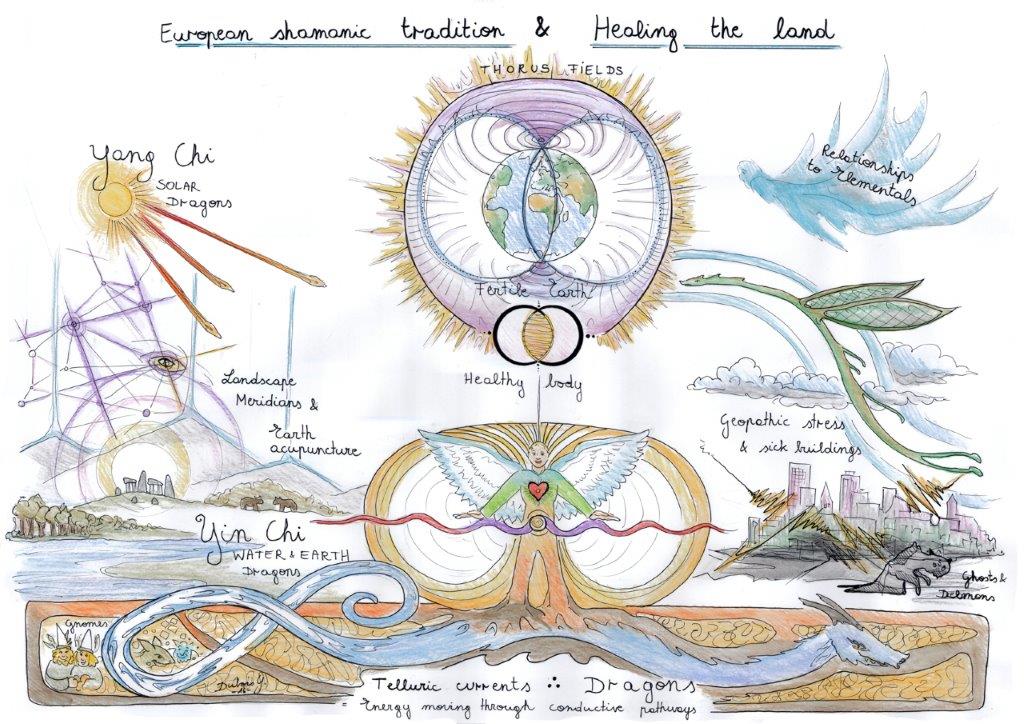 European shamanic tradition & Healing the land
THORUS FIELDS
Yang Chi
SOLAR
DRAGONS
Relationships
to Elementals
Fertile Earth
Healthy body
Landscape
Meridians &
Earth
acupuncture
Geopathic stress
& sick buildings
Yin Chi
WATER & EARTH
Dragons
Ghosts &
Deamons
Gnomes
Telluric currents ∴ Dragons
= Energy moving through conductive pathways